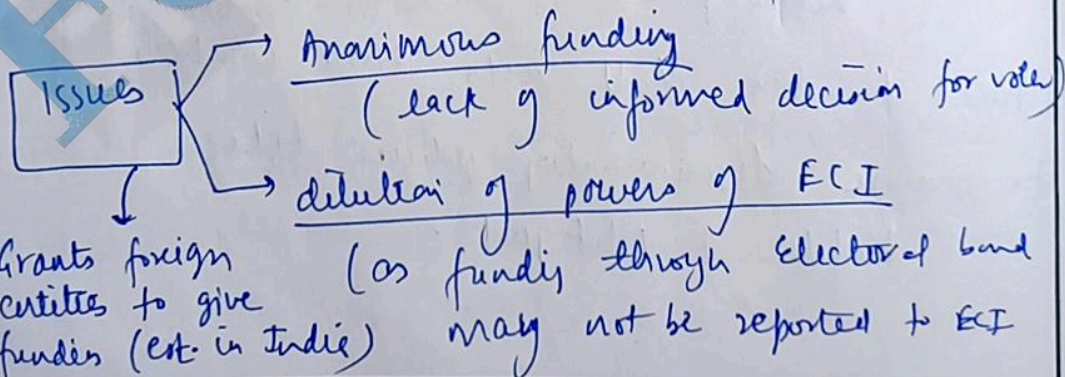 Issues
Anonimous funding
(lack of informed decision for voter)
dilution of powers of ECI
(as fundig through Electoral bond
may not be reported to ECI
Grants foreign
entities to give
fundin (est. in India)